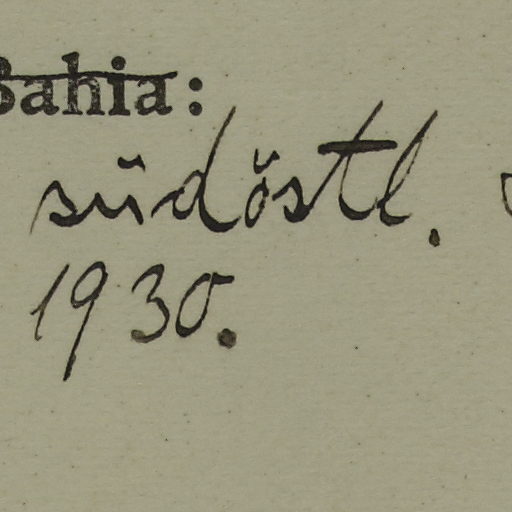 Bahia:
südöstl.
1930.